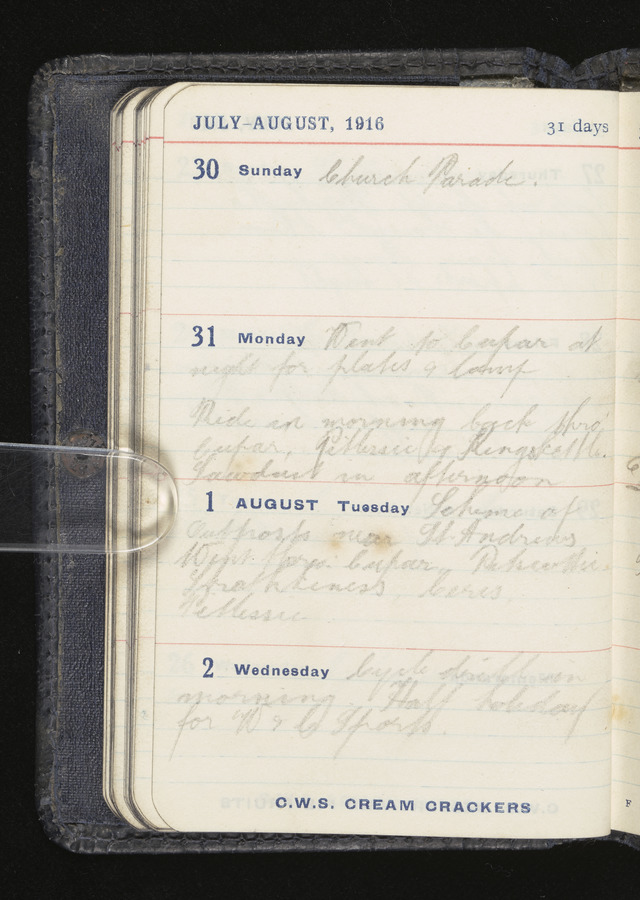 JULY–AUGUST, 1916 31 days
30 Sunday Church Parade.
31 Monday Went to Cupar at
night for plates & lamp
Ride in morning back thro'
Cupar, Pitlessie & Kingskettle.
Sawdust in afternoon
1 AUGUST Tuesday Scheme of
Outposts near St Andrews
Went thro. Cupar,
Strathkiness, Ceres,
Pitlessie
2 Wednesday Cycle drill in
morning. Half holiday
for D & C Sports.
C.W.S. CREAM CRACKERS